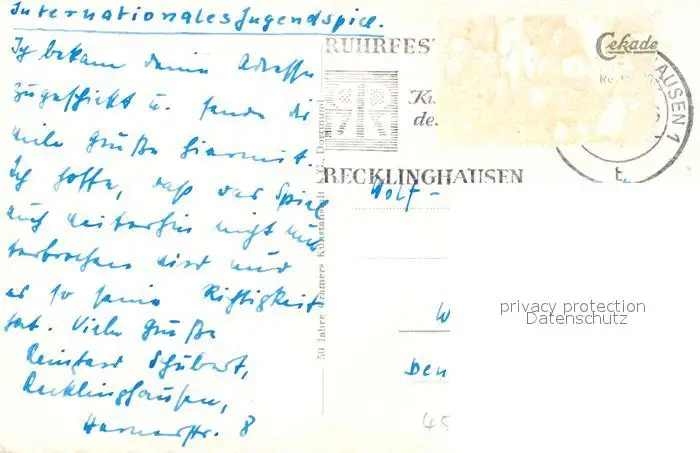 Internationales Jugendspiel.
Ich bekam deine Adresse
zugeschickt u. sende dir
viele Grüße hiermit.
Ich hoffe, daß das Spiel
auch weiterhin nicht un-
terbrochen wird und
es so seine Richtigkeit
hat. Viele Grüße
Reinhard Schubert,
Recklinghausen,
str. 8
50 Jahre Krämers Kunstanstalt
RUHRFES
Ku
de
RECKLINGHAUSEN
Cekade
HAUSEN 1
t
Wolf -
W
Den
45
privacy protection
Datenschutz